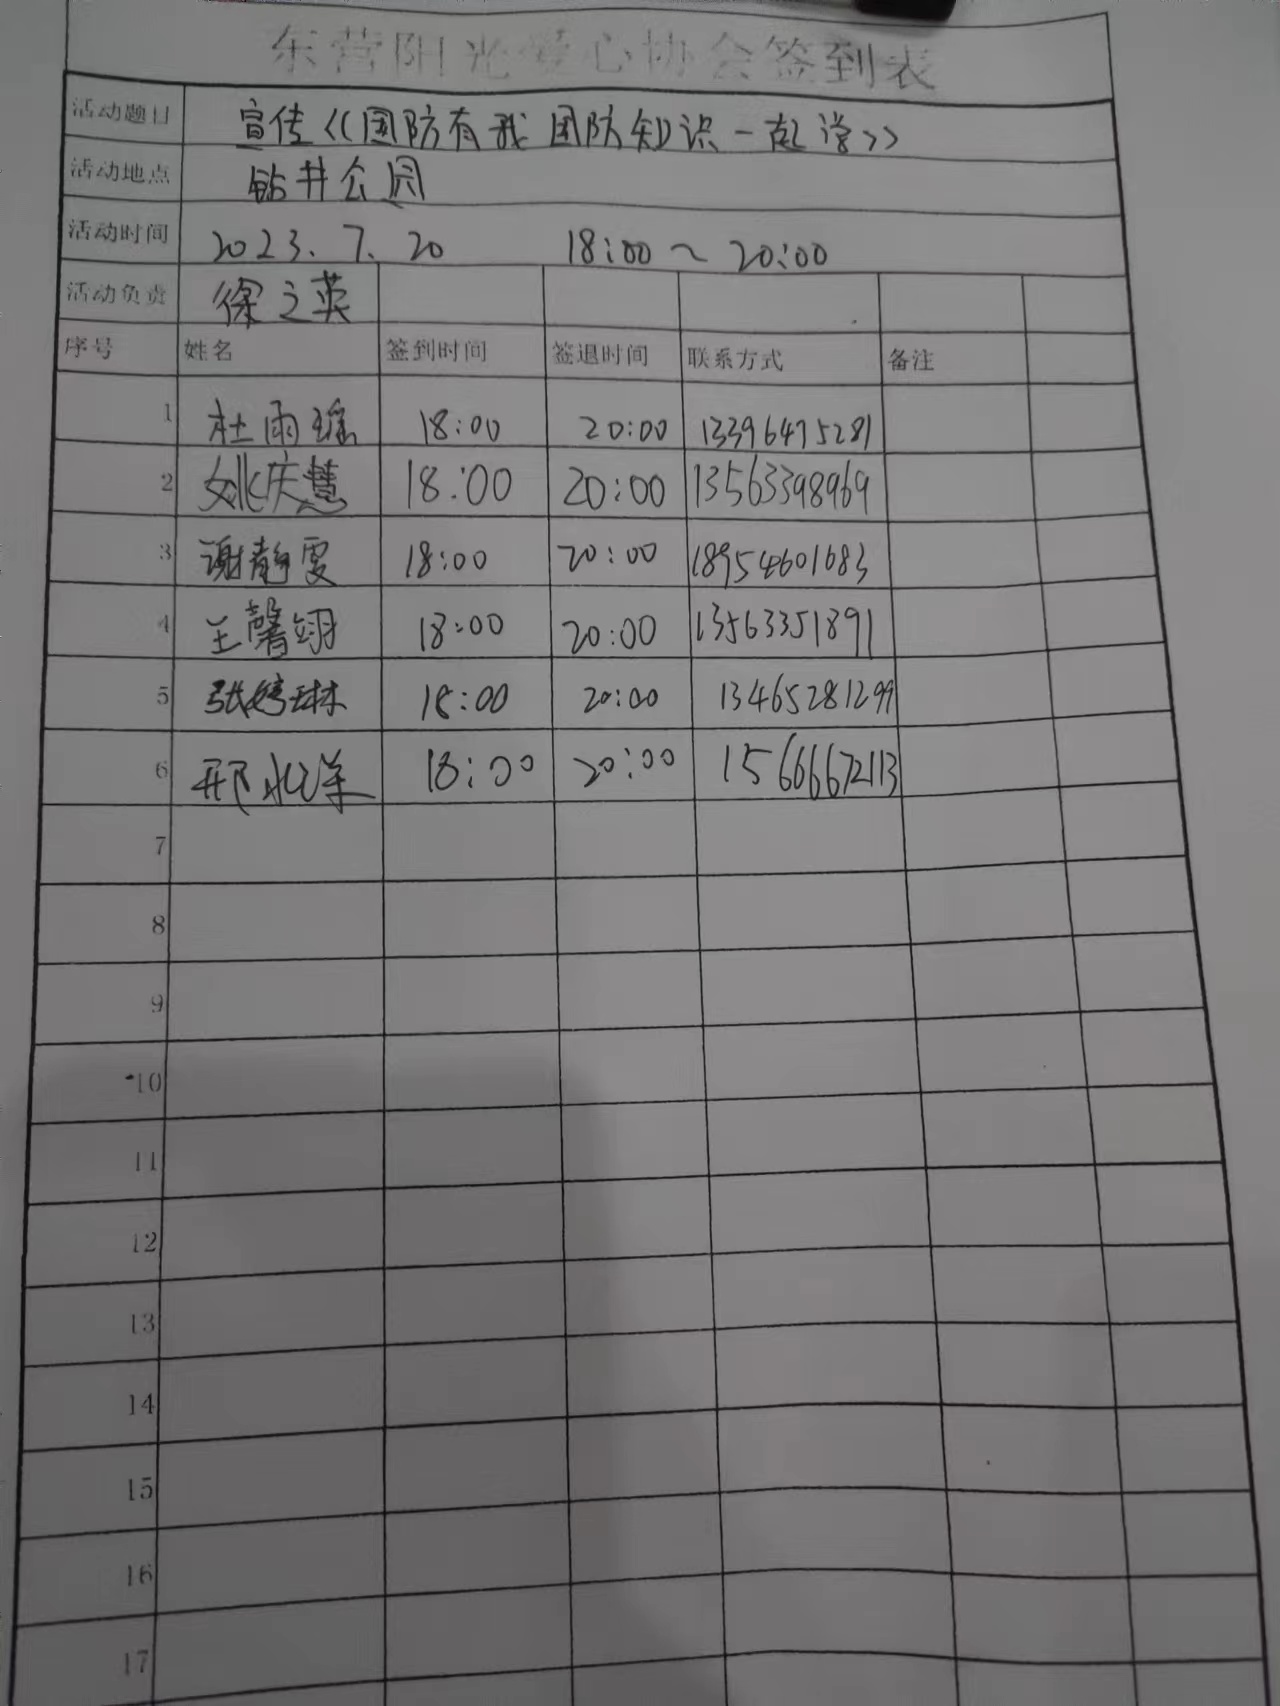 东营阳光爱心协会签到表
活动题目 宣传《国防有我 国防知识一起学》
活动地点 钻井公园
活动时间 2023.7.20 18:00~20:00
活动负责 徐之英
序号 姓名 签到时间 签退时间 联系方式 备注
1 杜雨瑶 18:00 20:00 13396495281
2 姚庆慧 18:00 20:00 13563398969
3 谢静雯 18:00 20:00 18954601683
4 王馨翊 18:00 20:00 13563351891
5 张婷琳 18:00 20:00 13465281299
6 邢 18:00 20:00 15666672113
7
8
9
10
11
12
13
14
15
16
17